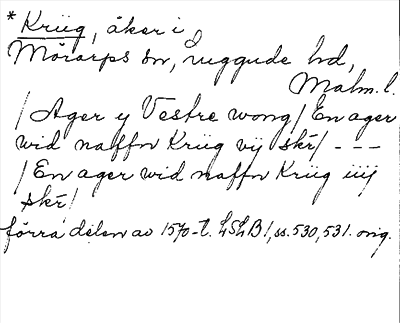 * Krüg, åker i
Mörarps sn, Luggude hd,
Malm. l.
/ Ager y Vestre wong / En ager
wid naffn Krüg vij skr/ - - -
/ En ager wid naffn Krüg iiij
skr/
förra delen av 1570-t. LSLB 1, ss. 530, 531. orig.